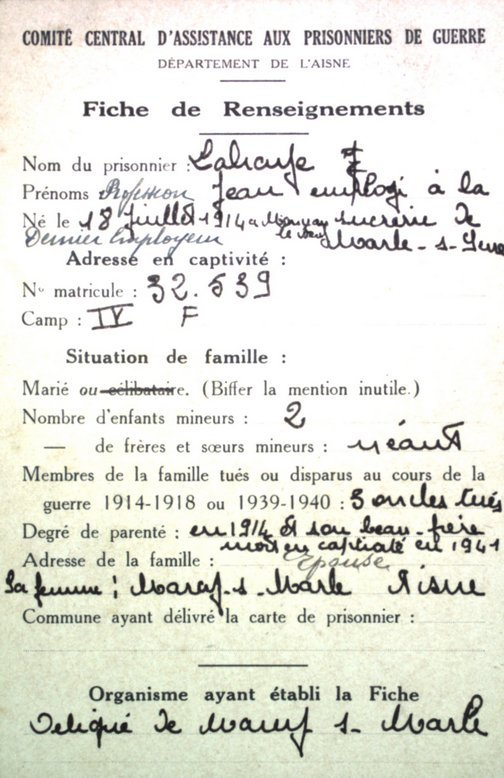 COMITÉ CENTRAL D'ASSISTANCE AUX PRISONNIERS DE GUERRE
DÉPARTEMENT DE L'AISNE
Fiche de Renseignements
Nom du prisonnier :
Prénoms Profession Jean employé à la
Né le 18 Juillet 1914 a sucrerie de
Dernier Employeur Marle-s-Serre
Adresse en captivité :
N° matricule : 32.539
Camp : IV F
Situation de famille :
Marié ou célibataire. (Biffer la mention inutile.)
Nombre d'enfants mineurs : 2
— de frères et sœurs mineurs : néant
Membres de la famille tués ou disparus au cours de la
guerre 1914-1918 ou 1939-1940 : 3 oncles tués
Degré de parenté : en 1914 et son beau-frère
mort en captivité en 1941
Adresse de la famille : épouse
Sa femme : s-Marle Aisne
Commune ayant délivré la carte de prisonnier :
Organisme ayant établi la Fiche
de s-Marle